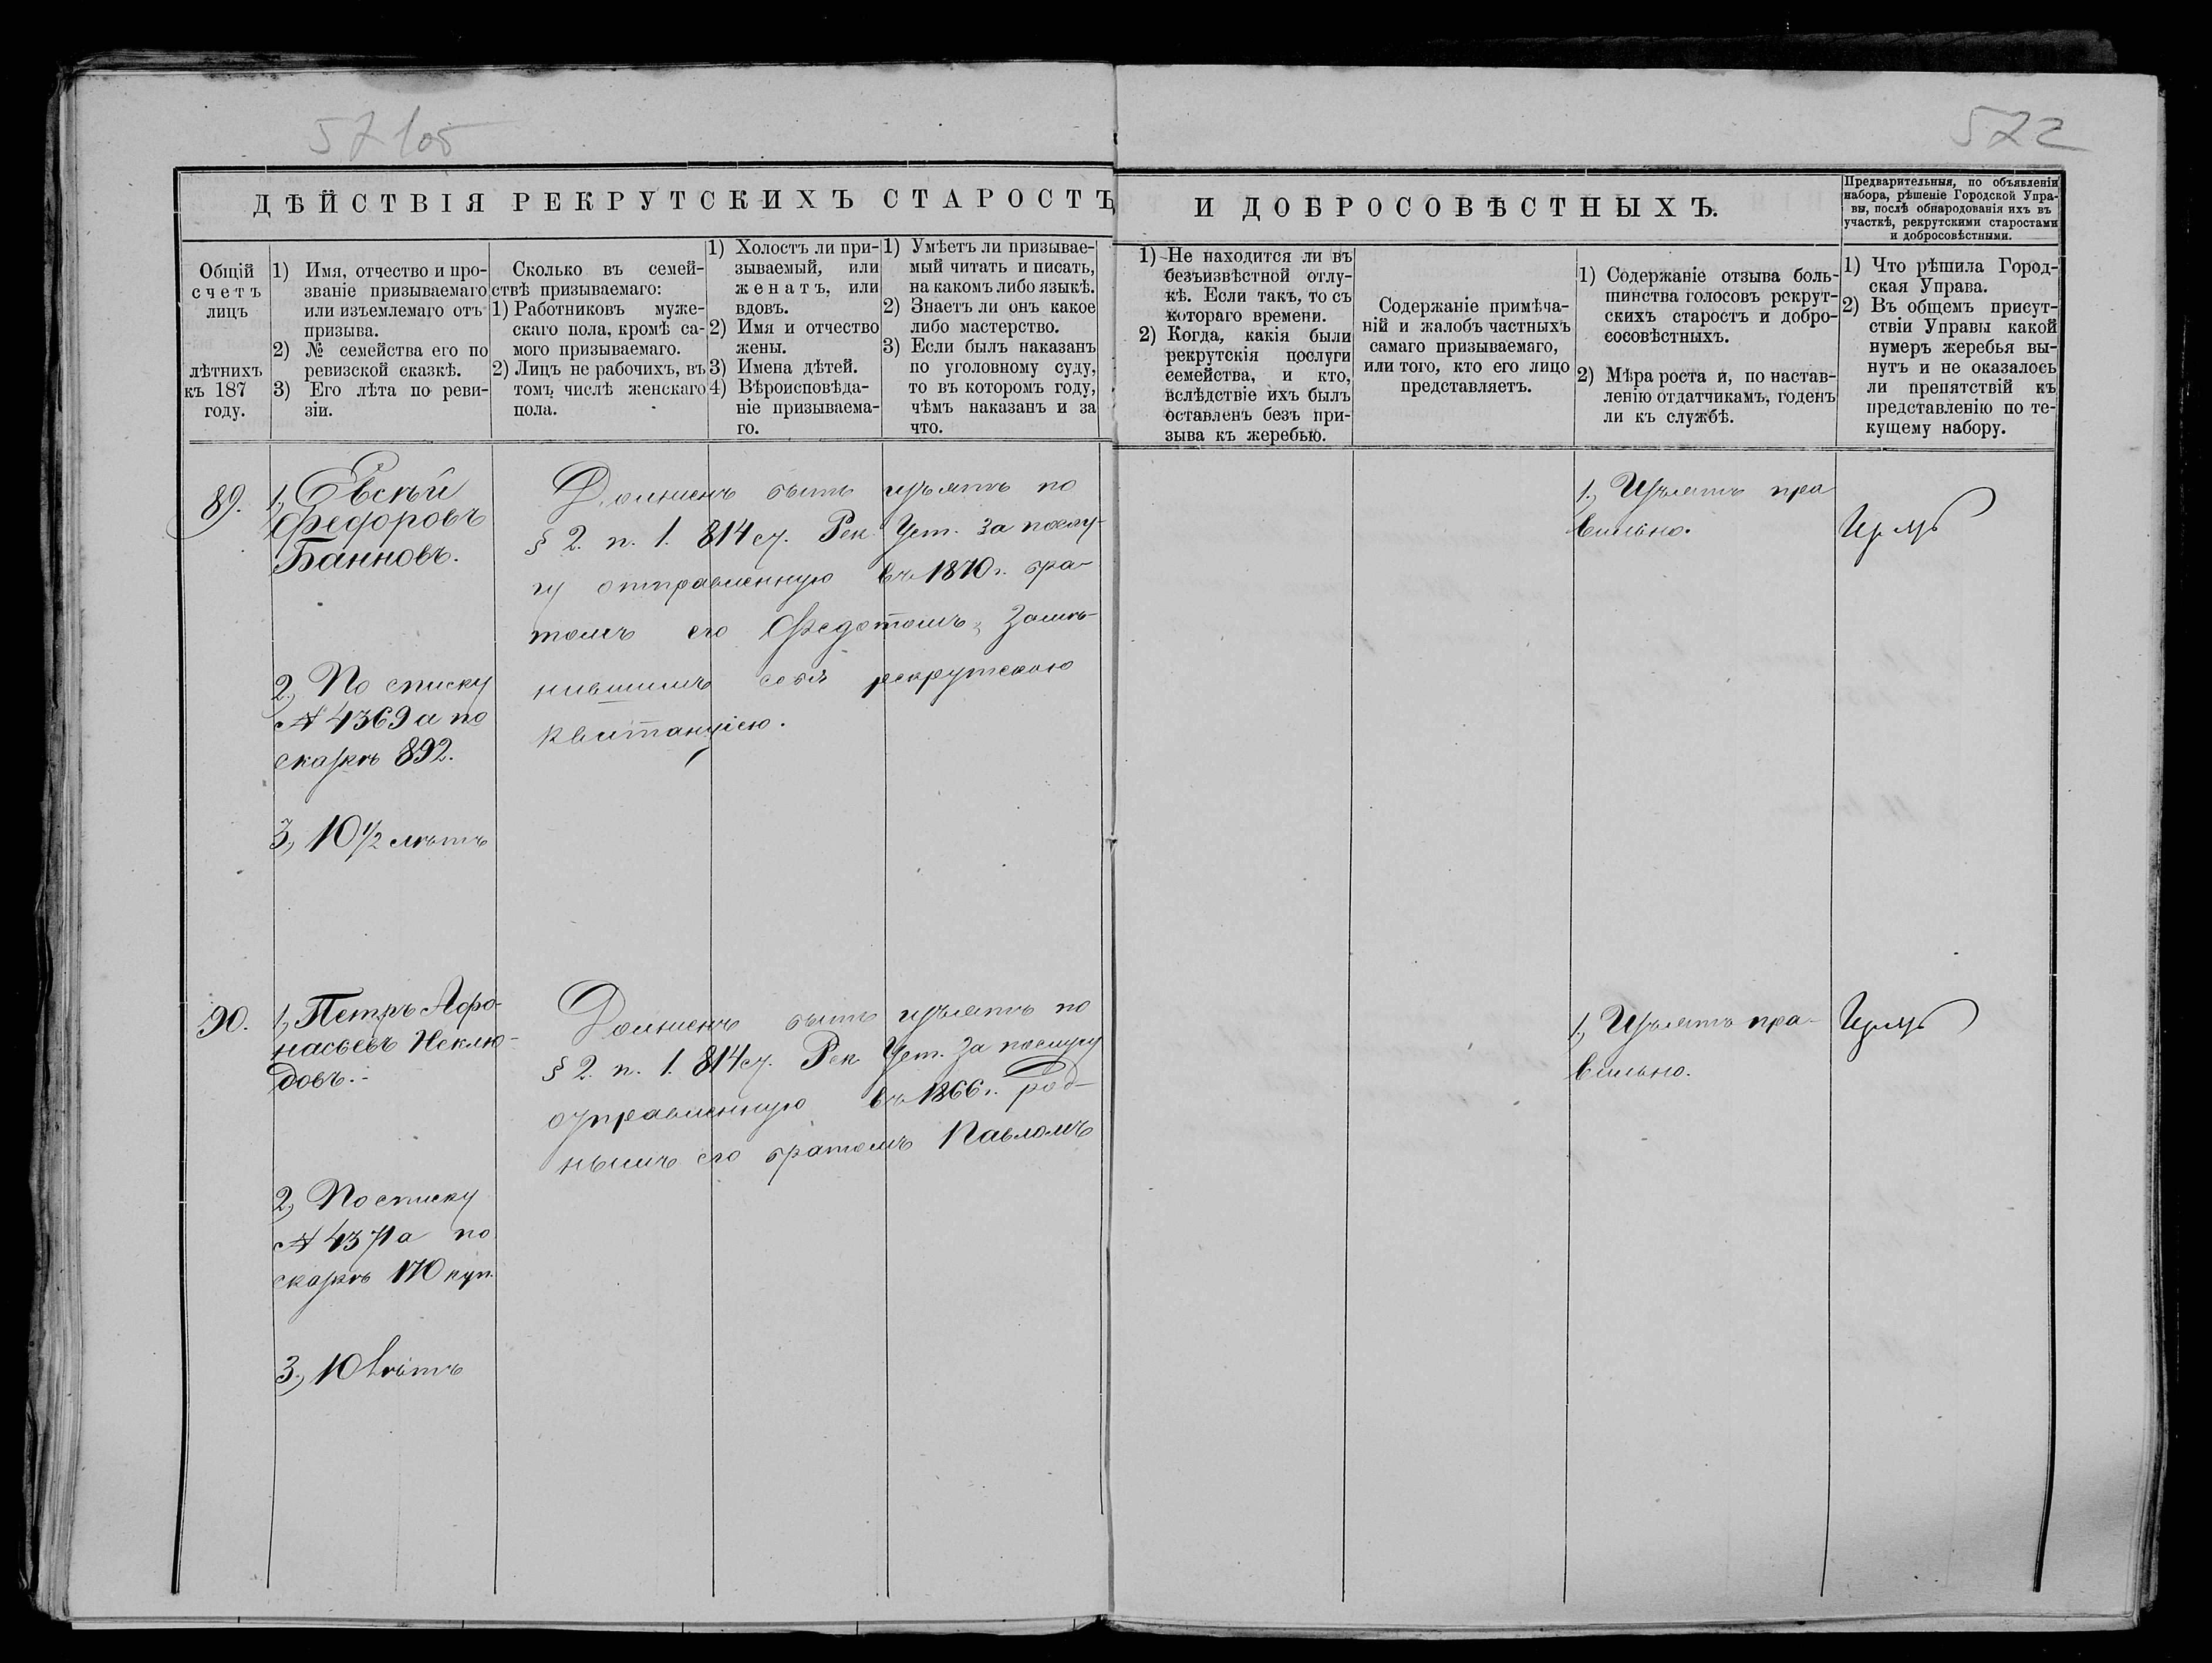 57 105
572
ДѢЙСТВІЯ РЕКРУТСКИХЪ СТАРОСТЪ
И ДОБРОСОВѢСТНЫХЪ.
Предварительныя, по объявленіи
набора, рѣшеніе Городской Упра-
вы, послѣ обнародованія ихъ въ
участкѣ, рекрутскими старостами
и добросовѣстными.
Общій
счетъ
лицъ
лѣтнихъ
къ 187
году.
1) Имя, отчество и про-
званіе призываемаго
или изъемлемаго отъ
призыва.
2) № семейства его по
ревизской сказкѣ.
3) Его лѣта по реви-
зіи.
Сколько въ семей-
ствѣ призываемаго:
1) Работниковъ муже-
скаго пола, кромѣ са-
мого призываемаго.
2) Лицъ не рабочихъ, въ
томъ числѣ женскаго
пола.
1) Холостъ ли при-
зываемый, или
женатъ, или
вдовъ.
2) Имя и отчество
жены.
3) Имена дѣтей.
4) Вѣроисповѣда-
ніе призываема-
го.
1) Умѣетъ ли призывае-
мый читать и писать,
на какомъ либо языкѣ.
2) Знаетъ ли онъ какое
либо мастерство.
3) Если былъ наказанъ
по уголовному суду,
то въ которомъ году,
чѣмъ наказанъ и за
что.
1) Не находится ли въ
безъизвѣстной отлу-
кѣ. Если такъ, то съ
котораго времени.
2) Когда, какія были
рекрутскія послуги
семейства, и кто,
вслѣдствіе ихъ былъ
оставленъ безъ при-
зыва къ жеребью.
Содержаніе примѣча-
ній и жалобъ частныхъ
самаго призываемаго,
или того, кто его лицо
представляетъ.
1) Содержаніе отзыва боль-
шинства голосовъ рекрут-
скихъ старостъ и добро-
сосовѣстныхъ.
2) Мѣра роста и, по настав-
ленію отдатчикамъ, годенъ
ли къ службѣ.
1) Что рѣшила Город-
ская Управа.
2) Въ общемъ присут-
ствіи Управы какой
нумеръ жеребья вы-
нутъ и не оказалось
ли препятствій къ
представленію по те-
кущему набору.
89.
1, Евсѣй
Федоровъ
Банновъ.
2, По списку
№ 4369 а по
сказкѣ 892.
3, 10 1/2 лѣтъ
Долженъ быть изъятъ по
§ 2. п. 1. 814 ст. Рек. Уст. за послу-
гу отправленную въ 1870 г. бра-
томъ его Федотомъ, замѣ-
нившимъ себя рекрутскою
квитанціею.
1, Изъятъ пра
вильно.
90.
1, Петръ Афо-
насьевъ Неклю-
довъ.-
2, По списку
№ 4371 а по
сказкѣ 170 куп.
3, 10 лѣтъ
Долженъ быть изъятъ по
§ 2. п. 1. 814 ст. Рек. Уст. за послугу
отправленную въ 1866 г. род-
нымъ его братомъ Павломъ
1, Изъятъ пра-
вильно.